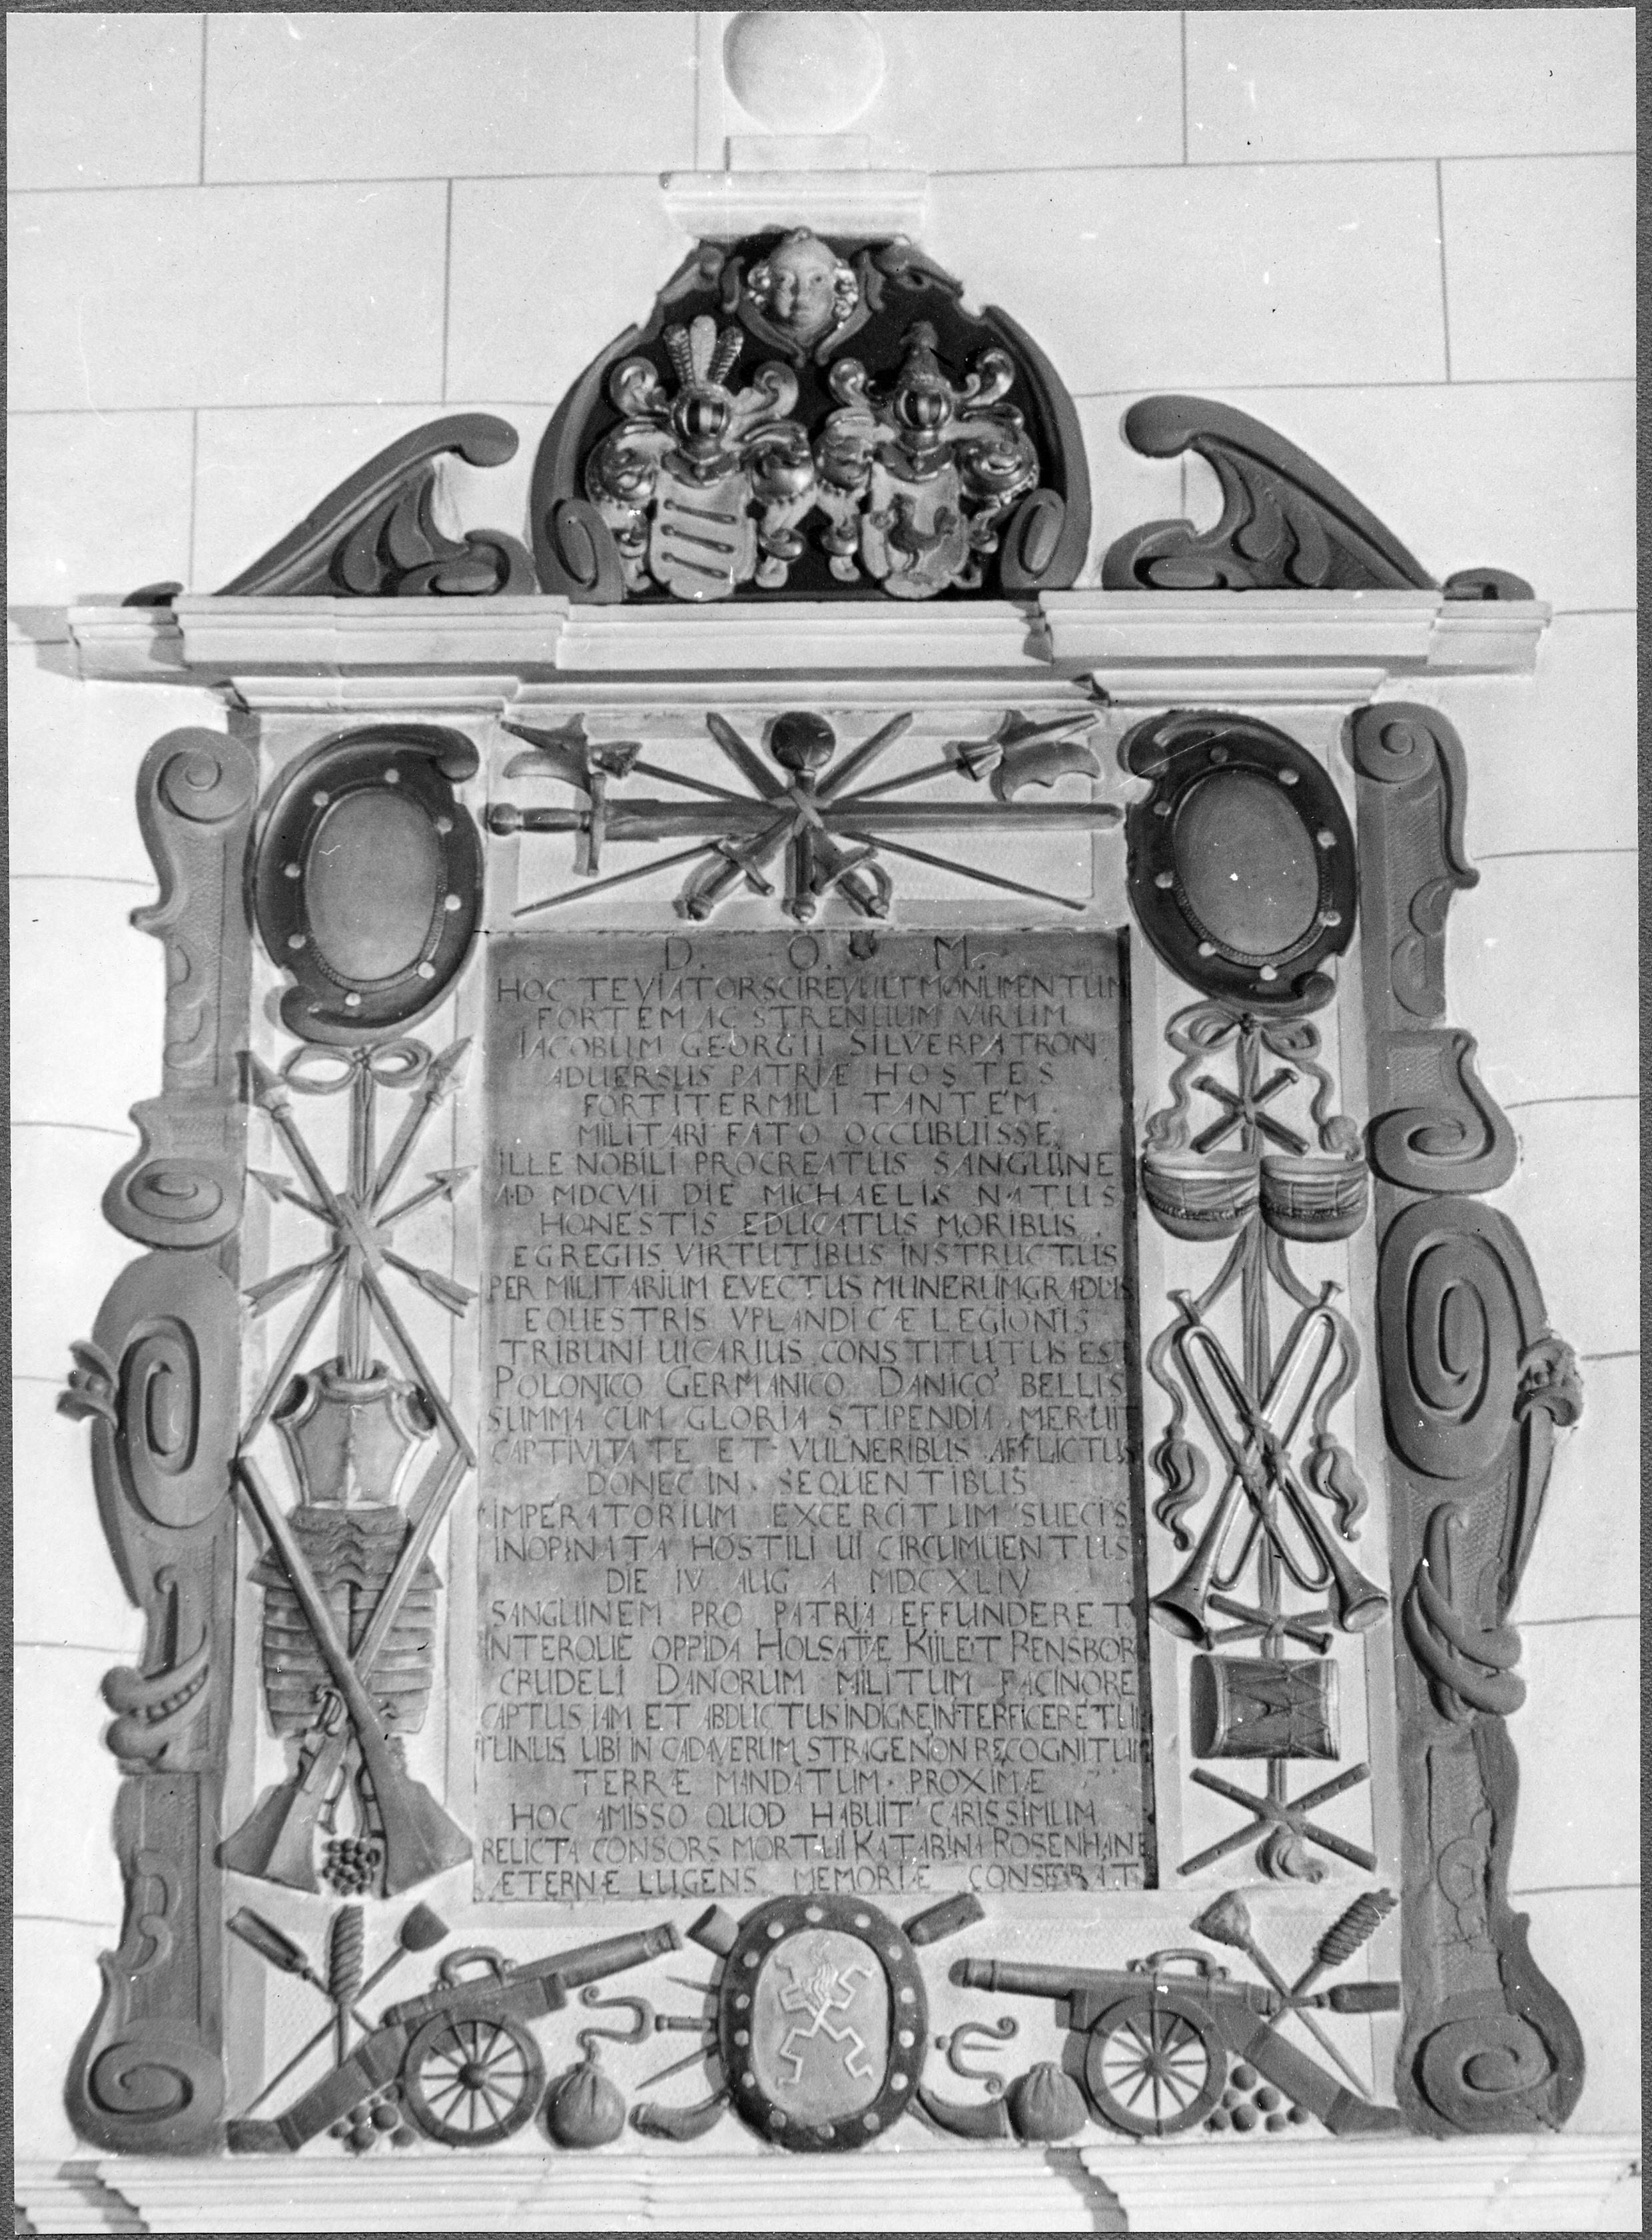 D. O. M.
HOC TE VIATOR SCIRE VULT MONUMENTUM
FORTEM AC STRENUUM VIRUM
IACOBUM GEORGII SILVERPATRON
ADUERSUS PATRIÆ HOSTES
FORTITER MILITANTEM.
MILITARI FATO OCCUBUISSE.
ILLE NOBILI PROCREATUS SANGUINE
A.D MDCVII DIE MICHAELIS NATUS
HONESTIS EDUCATUS MORIBUS.
EGREGIIS VIRTUTIBUS INSTRUCTUS
PER MILITARIUM EVECTUS MUNERUM GRADUS
EQUESTRIS VPLANDICÆ LEGIONIS
TRIBUNI UICARIUS CONSTITUTUS EST
POLONICO GERMANICO DANICO BELLIS
SUMMA CUM GLORIA STIPENDIA MERUIT
CAPTIVITATE ET VULNERIBUS AFFLICTUS
DONEC IN SEQUENTIBUS
IMPERATORIUM EXCERCITUM SUECIS
INOPINATA HOSTILI UI CIRCUMUENTUS
DIE IV AUG A MDCXLIV
SANGUINEM PRO PATRIA EFFUNDERET.
INTERQUE OPPIDA HOLSATIÆ KIILET RENSBOR
CRUDELI DANORUM MILITUM FACINORE
CAPTUS IAM ET ABDUCTUS INDIGNE INTERFICERETUR
UNUS UBI IN CADAVERUM STRAGE NON RECOGNITUM
TERRÆ MANDATUM. PROXIMÆ
HOC AMISSO QUOD HABUIT CARISSIMUM
RELICTA CONSORS MORTUI KATARINA ROSENHANE
ÆTERNÆ LUGENS MEMORIÆ CONSECRAT.